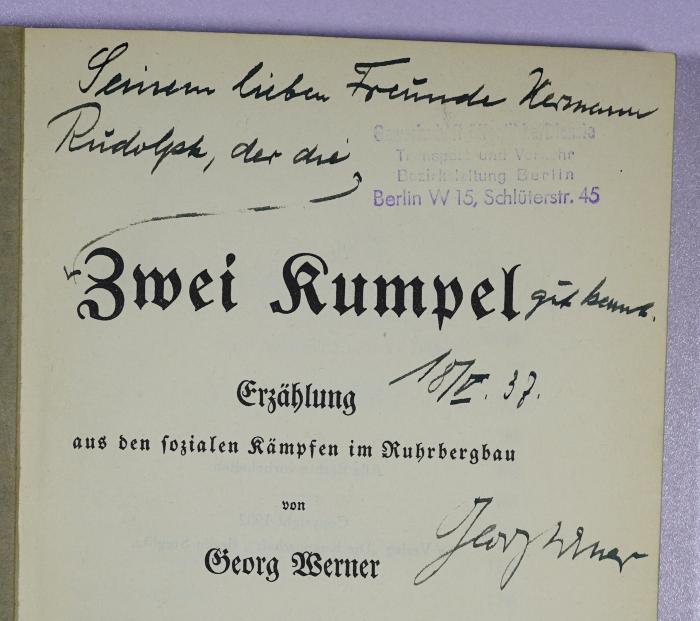 Seinem lieben Freunde Hermann
Rudolph, der die
Gewerkschaft Öffentliche Dienste
Transport und Verkehr
Bezirksleitung Berlin
Berlin W 15, Schlüterstr. 45
Zwei Kumpel gut kennt.
18/V. 37.
Erzählung
aus den sozialen Kämpfen im Ruhrbergbau
von
Georg Werner
Georg Werner